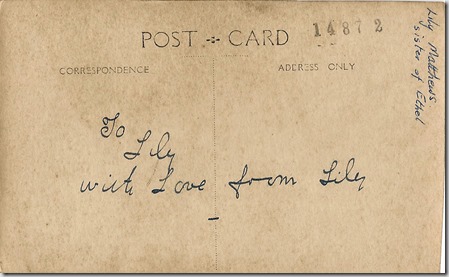 POST CARD
14872
CORRESPONDENCE
ADDRESS ONLY
To
Lily
with Love from Lily
Lily Matthews
sister of Ethel